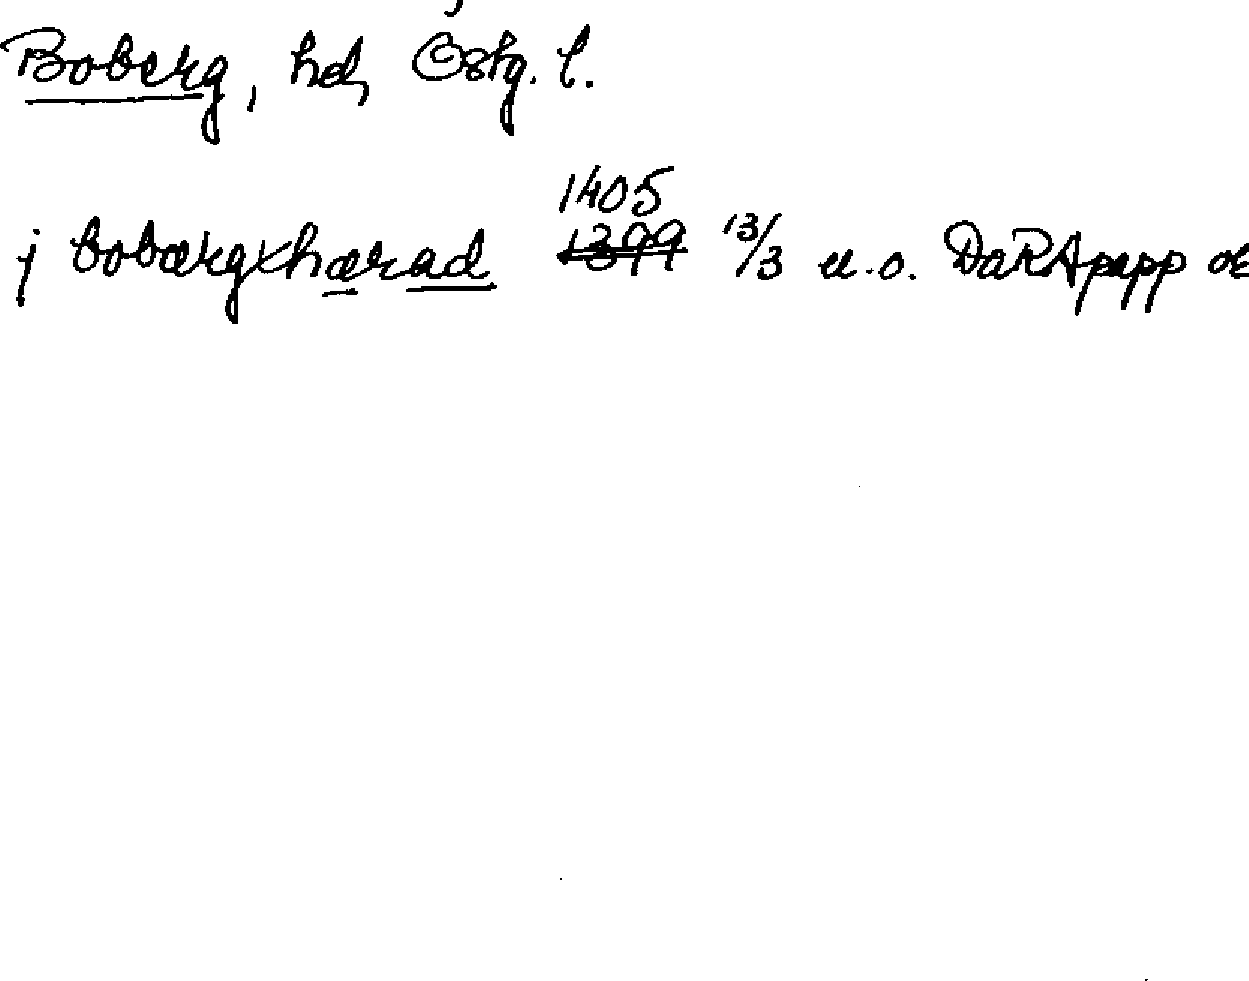 Boberg, hd, Östg. l.
j bobærgxhærad 1405 ~~1399~~ 13/3 u.o. DaRApapp or